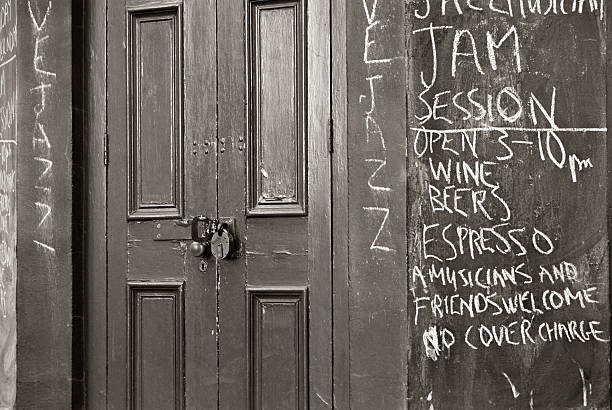 VEJAZZ
VEJAZZ
JAZZ MUSICIAN
JAM
SESSION
OPEN 3-10pm
WINE
BEERS
ESPRESSO
A MUSICIANS AND
FRIENDS WELCOME
NO COVER CHARGE